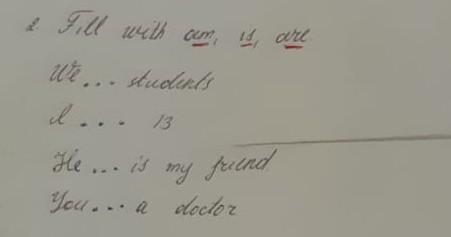 2. Fill with am, is, are
We... students
I... 13
He... is my friend
You... a doctor